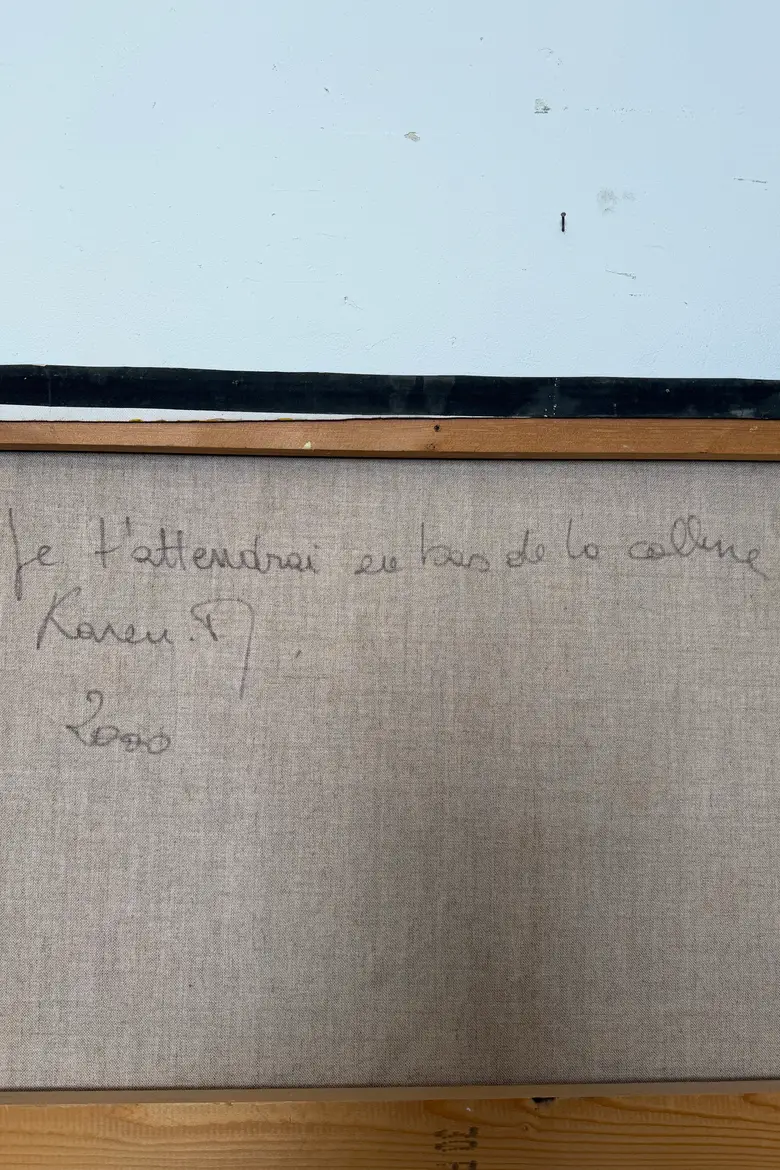 Je t'attendrai en bas de la colline
Karen.
2000